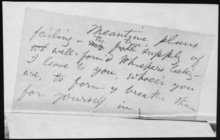 Meantime place
feeling — the full supply of
not well-form'd whispers
I leave to you, whoever you
are, to form & breathe them
for yourself, in